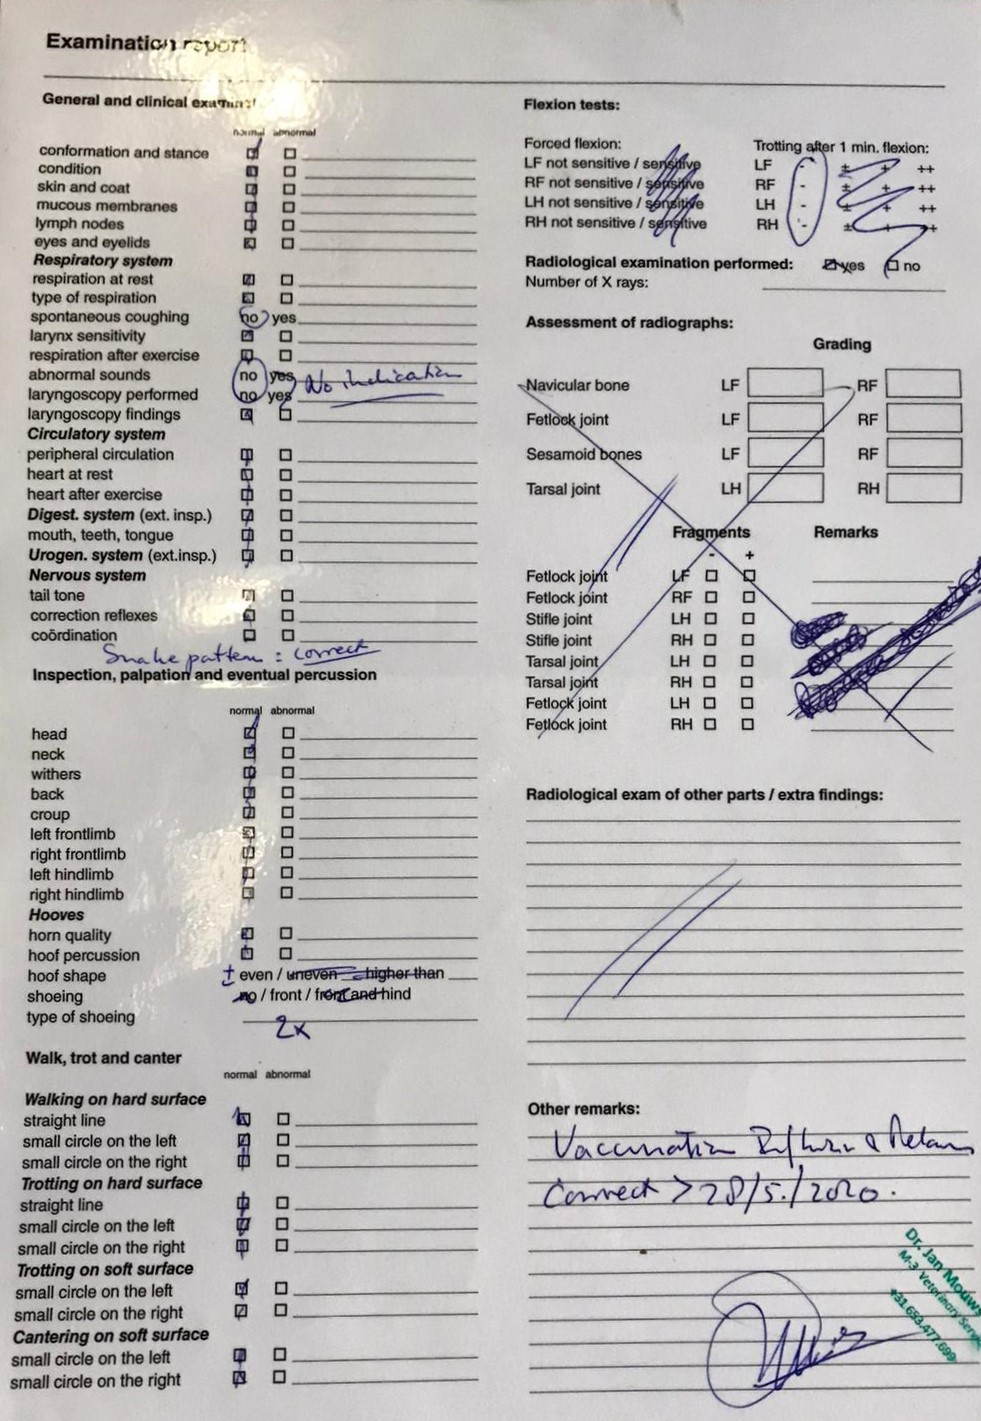 Examination report
General and clinical examinat
normal abnormal
conformation and stance
condition
skin and coat
mucous membranes
lymph nodes
eyes and eyelids
Respiratory system
respiration at rest
type of respiration
spontaneous coughing no yes
larynx sensitivity
respiration after exercise
abnormal sounds no yes No indication
laryngoscopy performed no yes
laryngoscopy findings
Circulatory system
peripheral circulation
heart at rest
heart after exercise
Digest. system (ext. insp.)
mouth, teeth, tongue
Urogen. system (ext.insp.)
Nervous system
tail tone
correction reflexes
coördination
Snake pattern : correct
Inspection, palpation and eventual percussion
normal abnormal
head
neck
withers
back
croup
left frontlimb
right frontlimb
left hindlimb
right hindlimb
Hooves
horn quality
hoof percussion
hoof shape ± even / uneven higher than
shoeing no / front / front and hind
type of shoeing
2x
Walk, trot and canter
normal abnormal
Walking on hard surface
straight line
small circle on the left
small circle on the right
Trotting on hard surface
straight line
small circle on the left
small circle on the right
Trotting on soft surface
small circle on the left
small circle on the right
Cantering on soft surface
small circle on the left
small circle on the right
Flexion tests:
Forced flexion: Trotting after 1 min. flexion:
LF not sensitive / sensitive LF - ± + ++
RF not sensitive / sensitive RF - ± + ++
LH not sensitive / sensitive LH - ± + ++
RH not sensitive / sensitive RH - ± + ++
Radiological examination performed: yes no
Number of X rays:
Assessment of radiographs:
Grading
Navicular bone LF RF
Fetlock joint LF RF
Sesamoid bones LF RF
Tarsal joint LH RH
Fragments Remarks
- +
Fetlock joint LF
Fetlock joint RF
Stifle joint LH
Stifle joint RH
Tarsal joint LH
Tarsal joint RH
Fetlock joint LH
Fetlock joint RH
Radiological exam of other parts / extra findings:
Other remarks:
Vaccination
Correct > 28/5./2020.
Dr. Jan Mouws
M-3 Veterinary Servic
+31.653.477.699